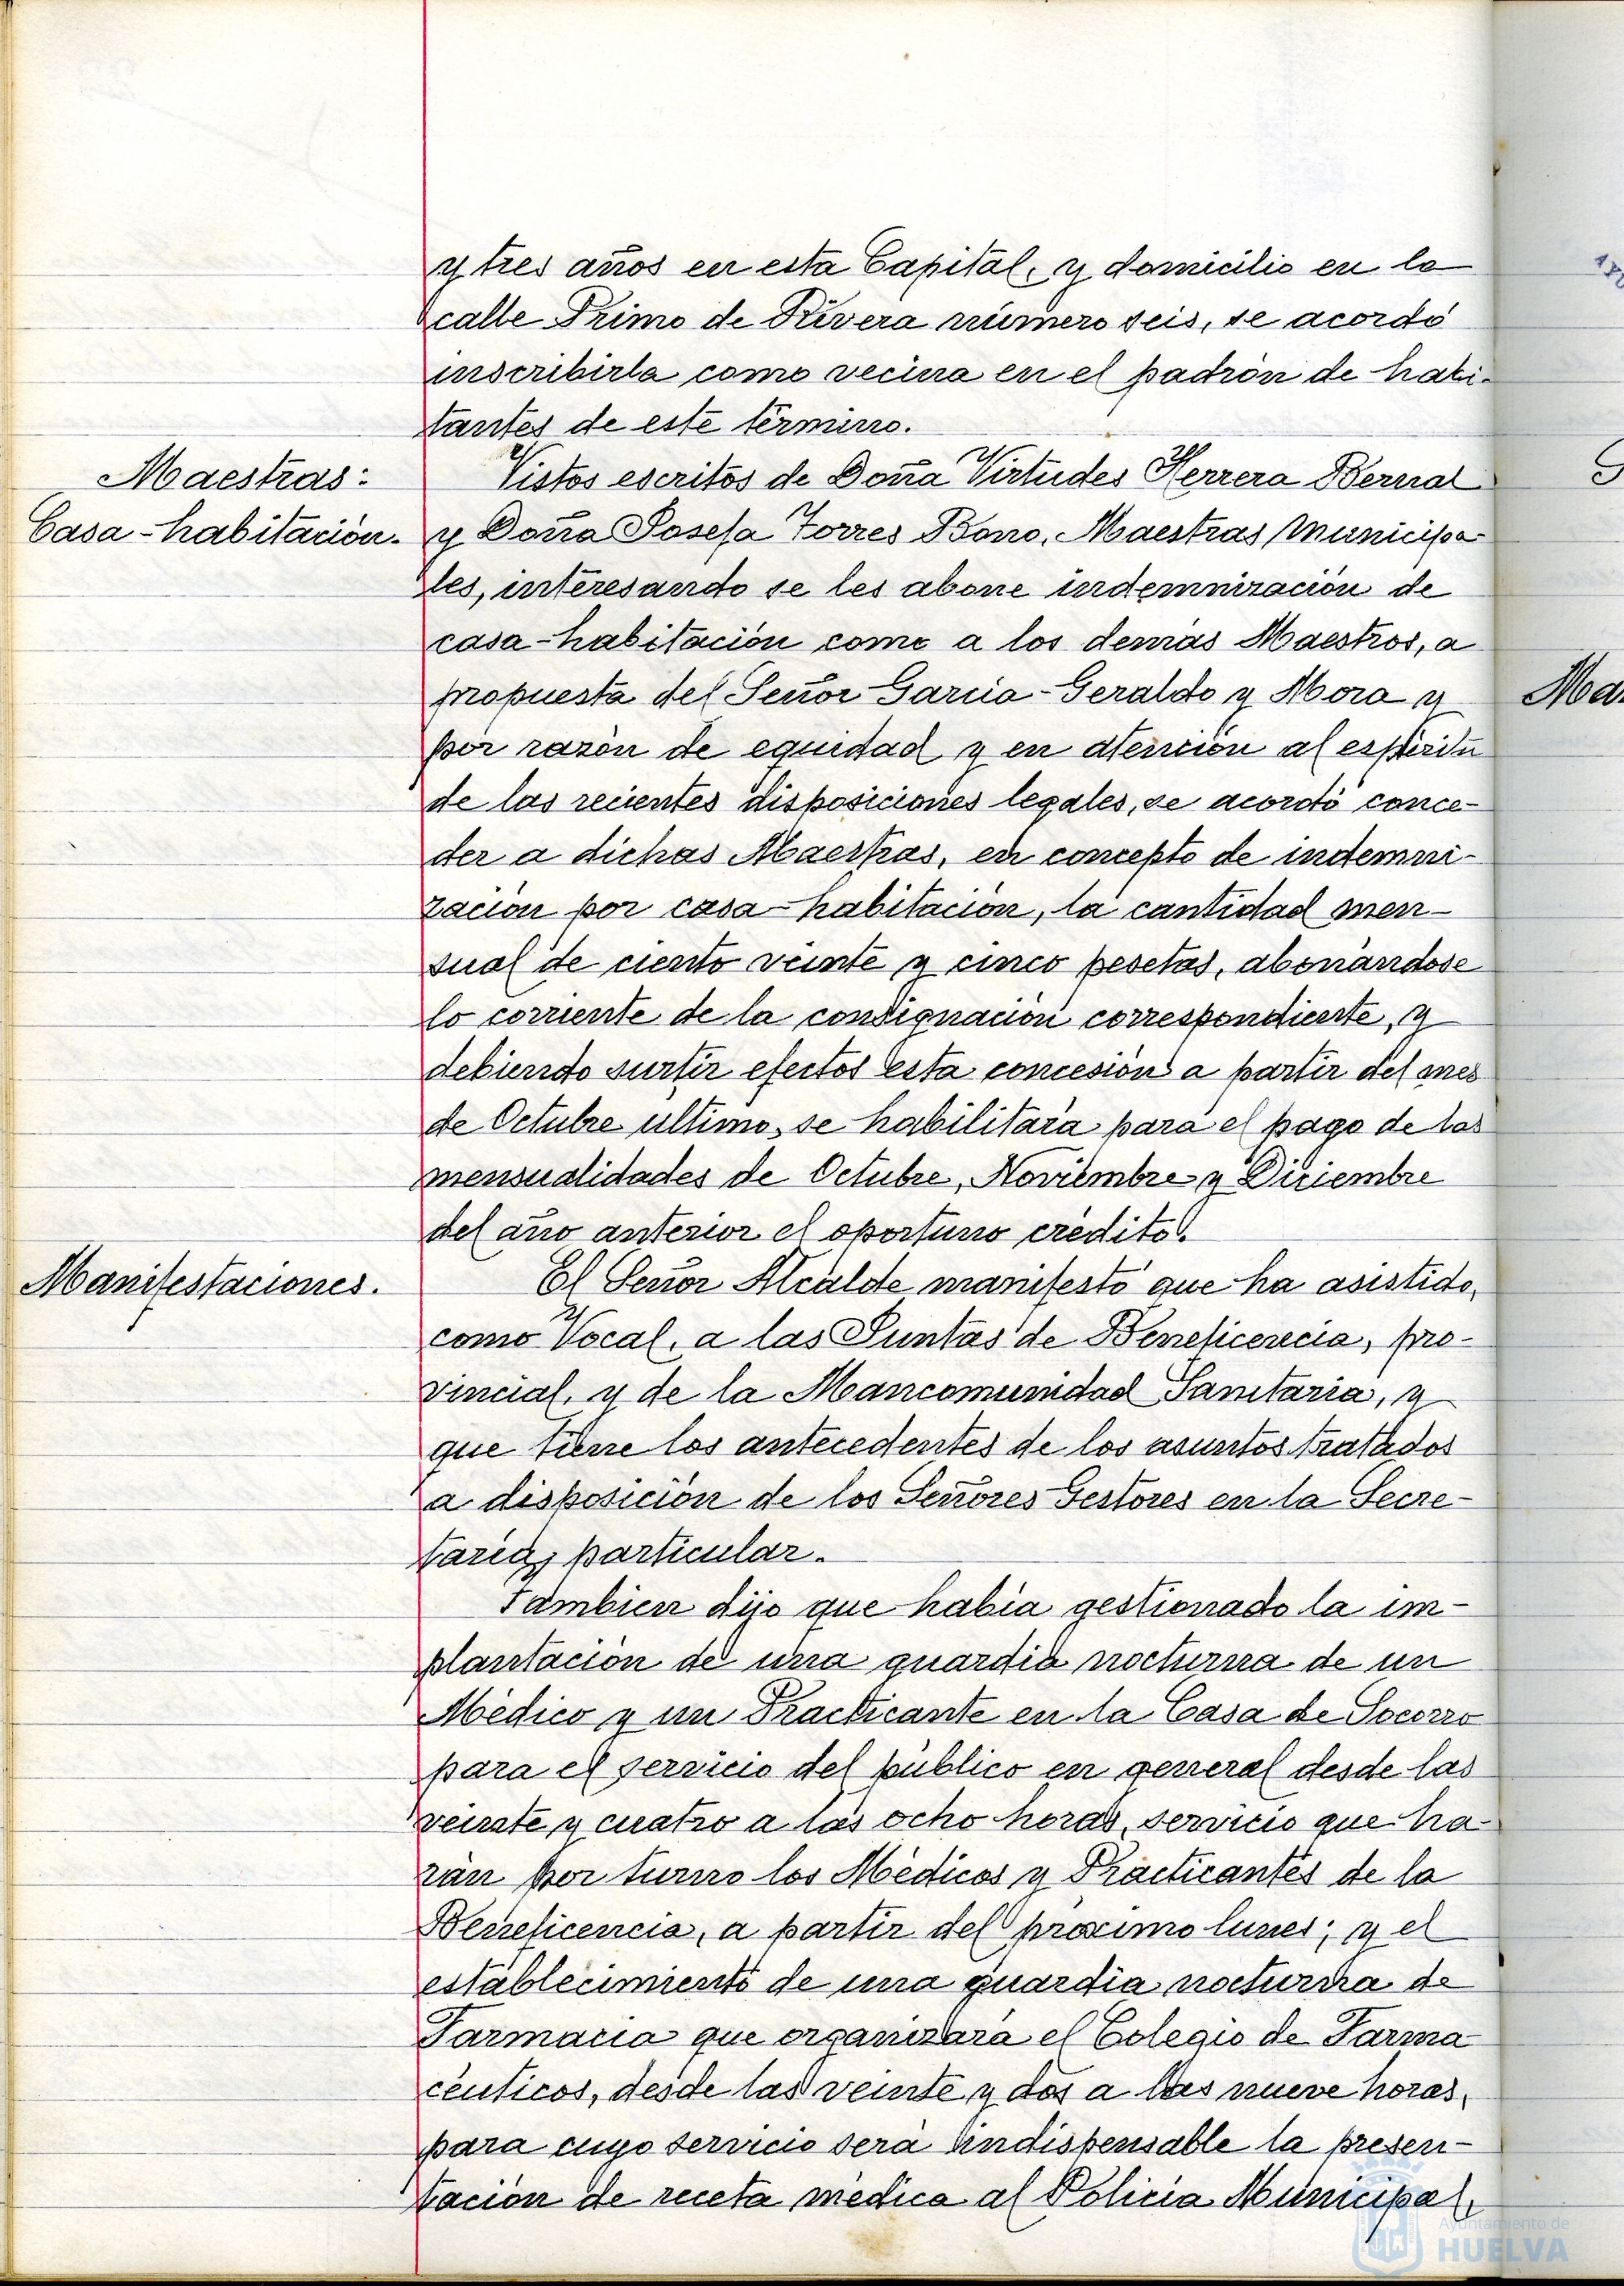 y tres años en esta Capital, y domicilio en la
calle Primo de Rivera número seis, se acordó
inscribirla como vecina en el padrón de habi-
tantes de este término.
Maestras:
Casa-habitación.
Vistos escritos de Doña Virtudes Herrera Bernal
y Doña Josefa Torres Bono, Maestras Municipa-
les, interesando se les abone indemnización de
casa-habitación como a los demás Maestros, a
propuesta del Señor Garcia-Geraldo y Mora y
por razón de equidad y en atención al espíritu
de las recientes disposiciones legales, se acordó conce-
der a dichas Maestras, en concepto de indemni-
zación por casa-habitación, la cantidad men-
sual de ciento veinte y cinco pesetas, abonándose
lo corriente de la consignación correspondiente, y
debiendo surtir efectos esta concesión a partir del mes
de Octubre último, se habilitará para el pago de las
mensualidades de Octubre, Noviembre y Diciembre
del año anterior el oportuno crédito.
Manifestaciones.
El Señor Alcalde manifestó que ha asistido,
como Vocal, a las Juntas de Beneficencia, pro-
vincial, y de la Mancomunidad Sanitaria, y
que tiene los antecedentes de los asuntos tratados
a disposición de los Señores Gestores en la Secre-
taría particular.
Tambien dijo que había gestionado la im-
plantación de una guardia nocturna de un
Médico y un Practicante en la Casa de Socorro
para el servicio del público en general desde las
veinte y cuatro a las ocho horas, servicio que ha-
rán por turno los Médicos y Practicantes de la
Beneficencia, a partir del próximo lunes; y el
establecimiento de una guardia nocturna de
Farmacia que organizará el Colegio de Farma-
céuticos, desde las veinte y dos a las nueve horas,
para cuyo servicio será indispensable la presen-
tación de receta médica al Policía Municipal,
Ayuntamiento de
HUELVA